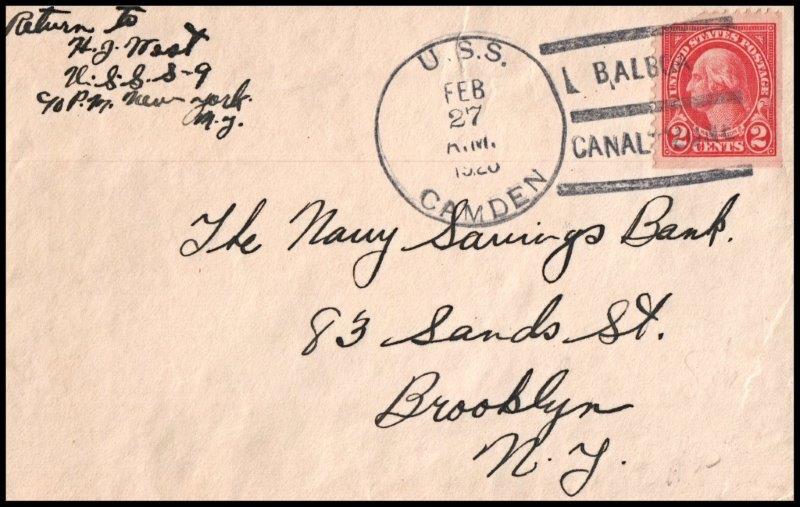 Return to
H. J. West
U.S.S. S-9
c/o P.M. New York.
N.Y.
U.S.S.
FEB
27
A.M.
CAMDEN
BALBOA
CANAL ZONE
UNITED STATES POSTAGE
2 CENTS 2
The Navy Savings Bank.
83 Sands St.
Brooklyn
N.Y.